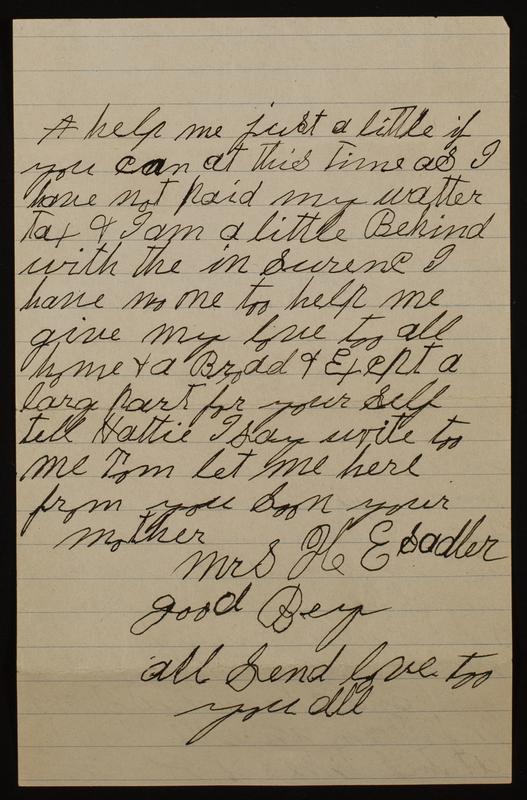 & help me just a little if
you can at this time as I
have not paid my watter
tax & I am a little Behind
with the in surence I
have no one too help me
give my love too all
home & a Broad & Except a
larg part for your self
tell Hattie I say write too
me Tom let me here
from you soon your
mother
Mrs H E Sadler
good Bey
all send love too
you all